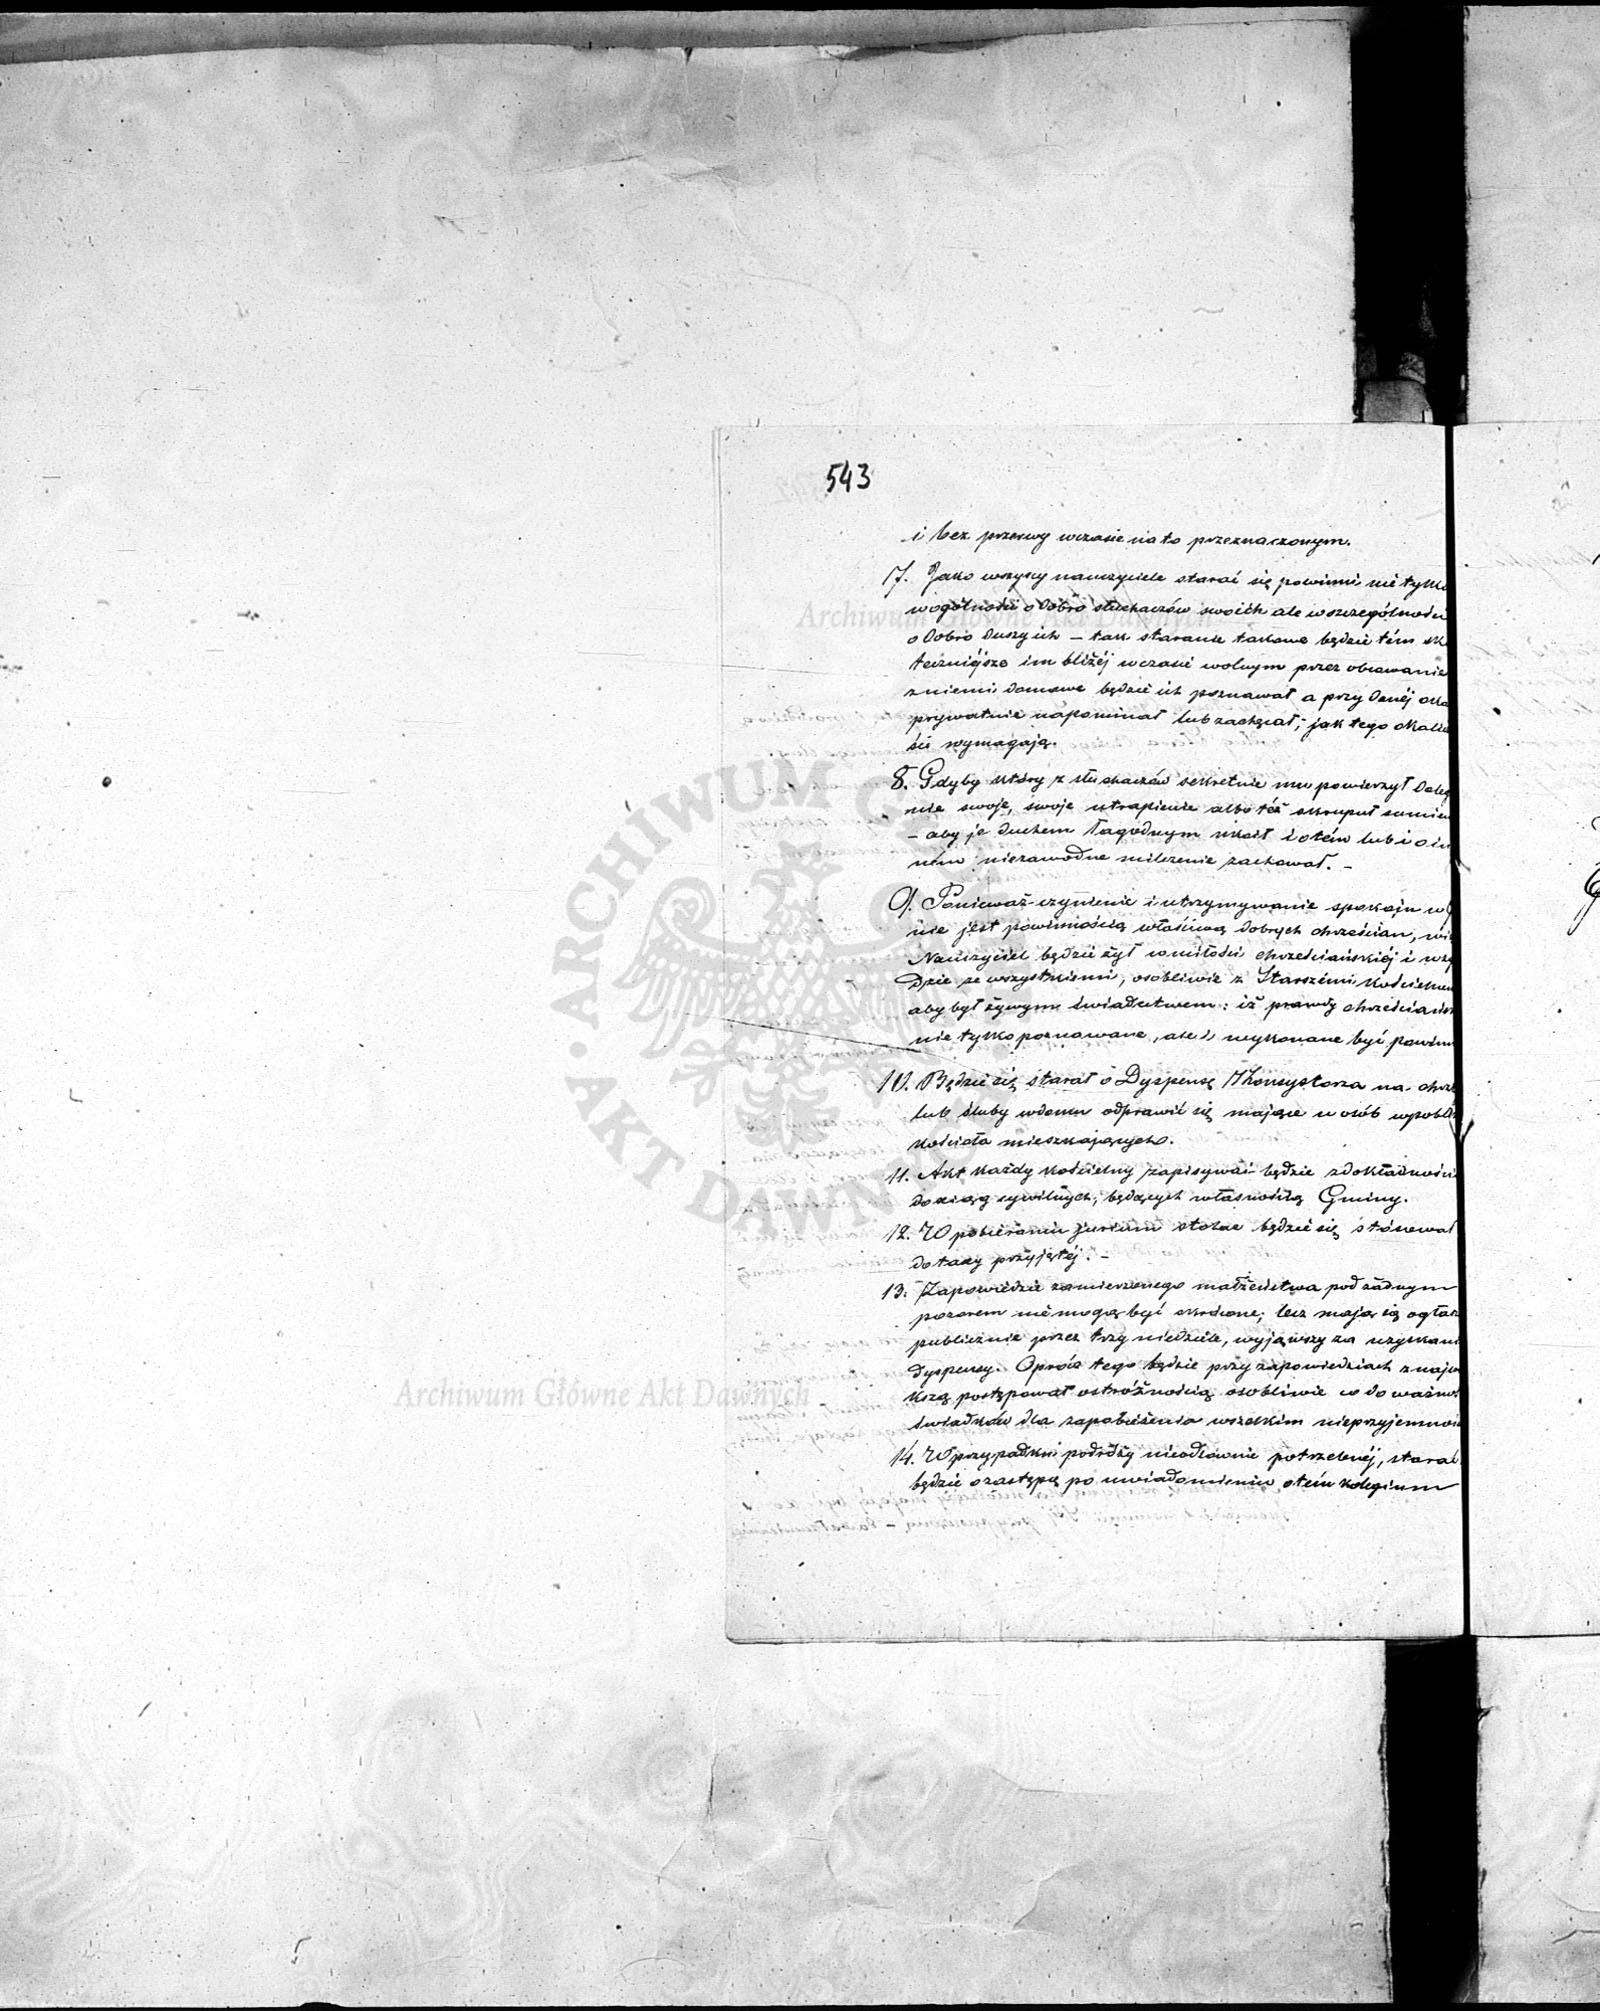 543
i bez przerwy wczasie nato przeznaczonym.
7. Jako wszyscy nauczyciele starać się powinni nietylko
wogólności o dobro słuchaczów swoich ale wszczególności
o dobro duszy ich – tak staranie takowe będzie tém sku
teczniéjsze im bliżéj wczasie wolnym przez obcowanie
zniemi domowe będzie ich poznawał a przy danéj oka
prywatnie napominał lub zachęcał, jak tego okolicz
ści wymagają.
8. Gdyby który z słuchaczów sekretnie mu powierzył doleg
nie swoje, swoje utrapienie albo téż skrupuł sumien
– aby je duchem łagodnym niósł i otém lub i o in
ném niezawodne milczenie zachował. –
9. Ponieważ czynienie i utrzymywanie spokoju w
nie jest powinnością właściwą dobrych chrześcian, wię
Nauczyciel będzie żył wmiłości chrześciańskiéj i wzg
dzie ze wszystkiemi, osobliwie z Starszémi kościelnem
aby był żywym świadectwem: iż prawdy chrześciańsk
nie tylko poznawane, ale i wykonane być powinn
10. Będzie się starał o Dyspensę Konsystorza na chrz
lub śluby wdomu odprawić się mające u osób wpobli
kościoła mieszkających.
11. Akt każdy kościelny zapisywać będzie zdokładności
do xiąg cywilnych, będących własnością Gminy.
12. W pobieraniu jurium stolae będzie się stósował
do taxy przyjętéj. –
13. Zapowiedzie zamierzonego małżeństwa pod żadnym
pozorem nie mogą być skrócone; lecz mają się ogłasz
publicznie przez trzy niedziele, wyjąwszy za uzyskani
dyspensy. Oprócz tego będzie przy zapowiedziach znajw
kszą postępował ostróżnością osobliwie co do ważnoś
świadków dla zapobieżenia wszelkim nieprzyjemnoś
14. W przypadku podróży nieodzownie potrzebnéj, starał
będzie o zastępę po uwiadomieniu o tém kolegium
Archiwum Główne Akt Dawnych
Archiwum Główne Akt Dawnych
ARCHIWUM GŁÓWNE AKT DAWNYCH